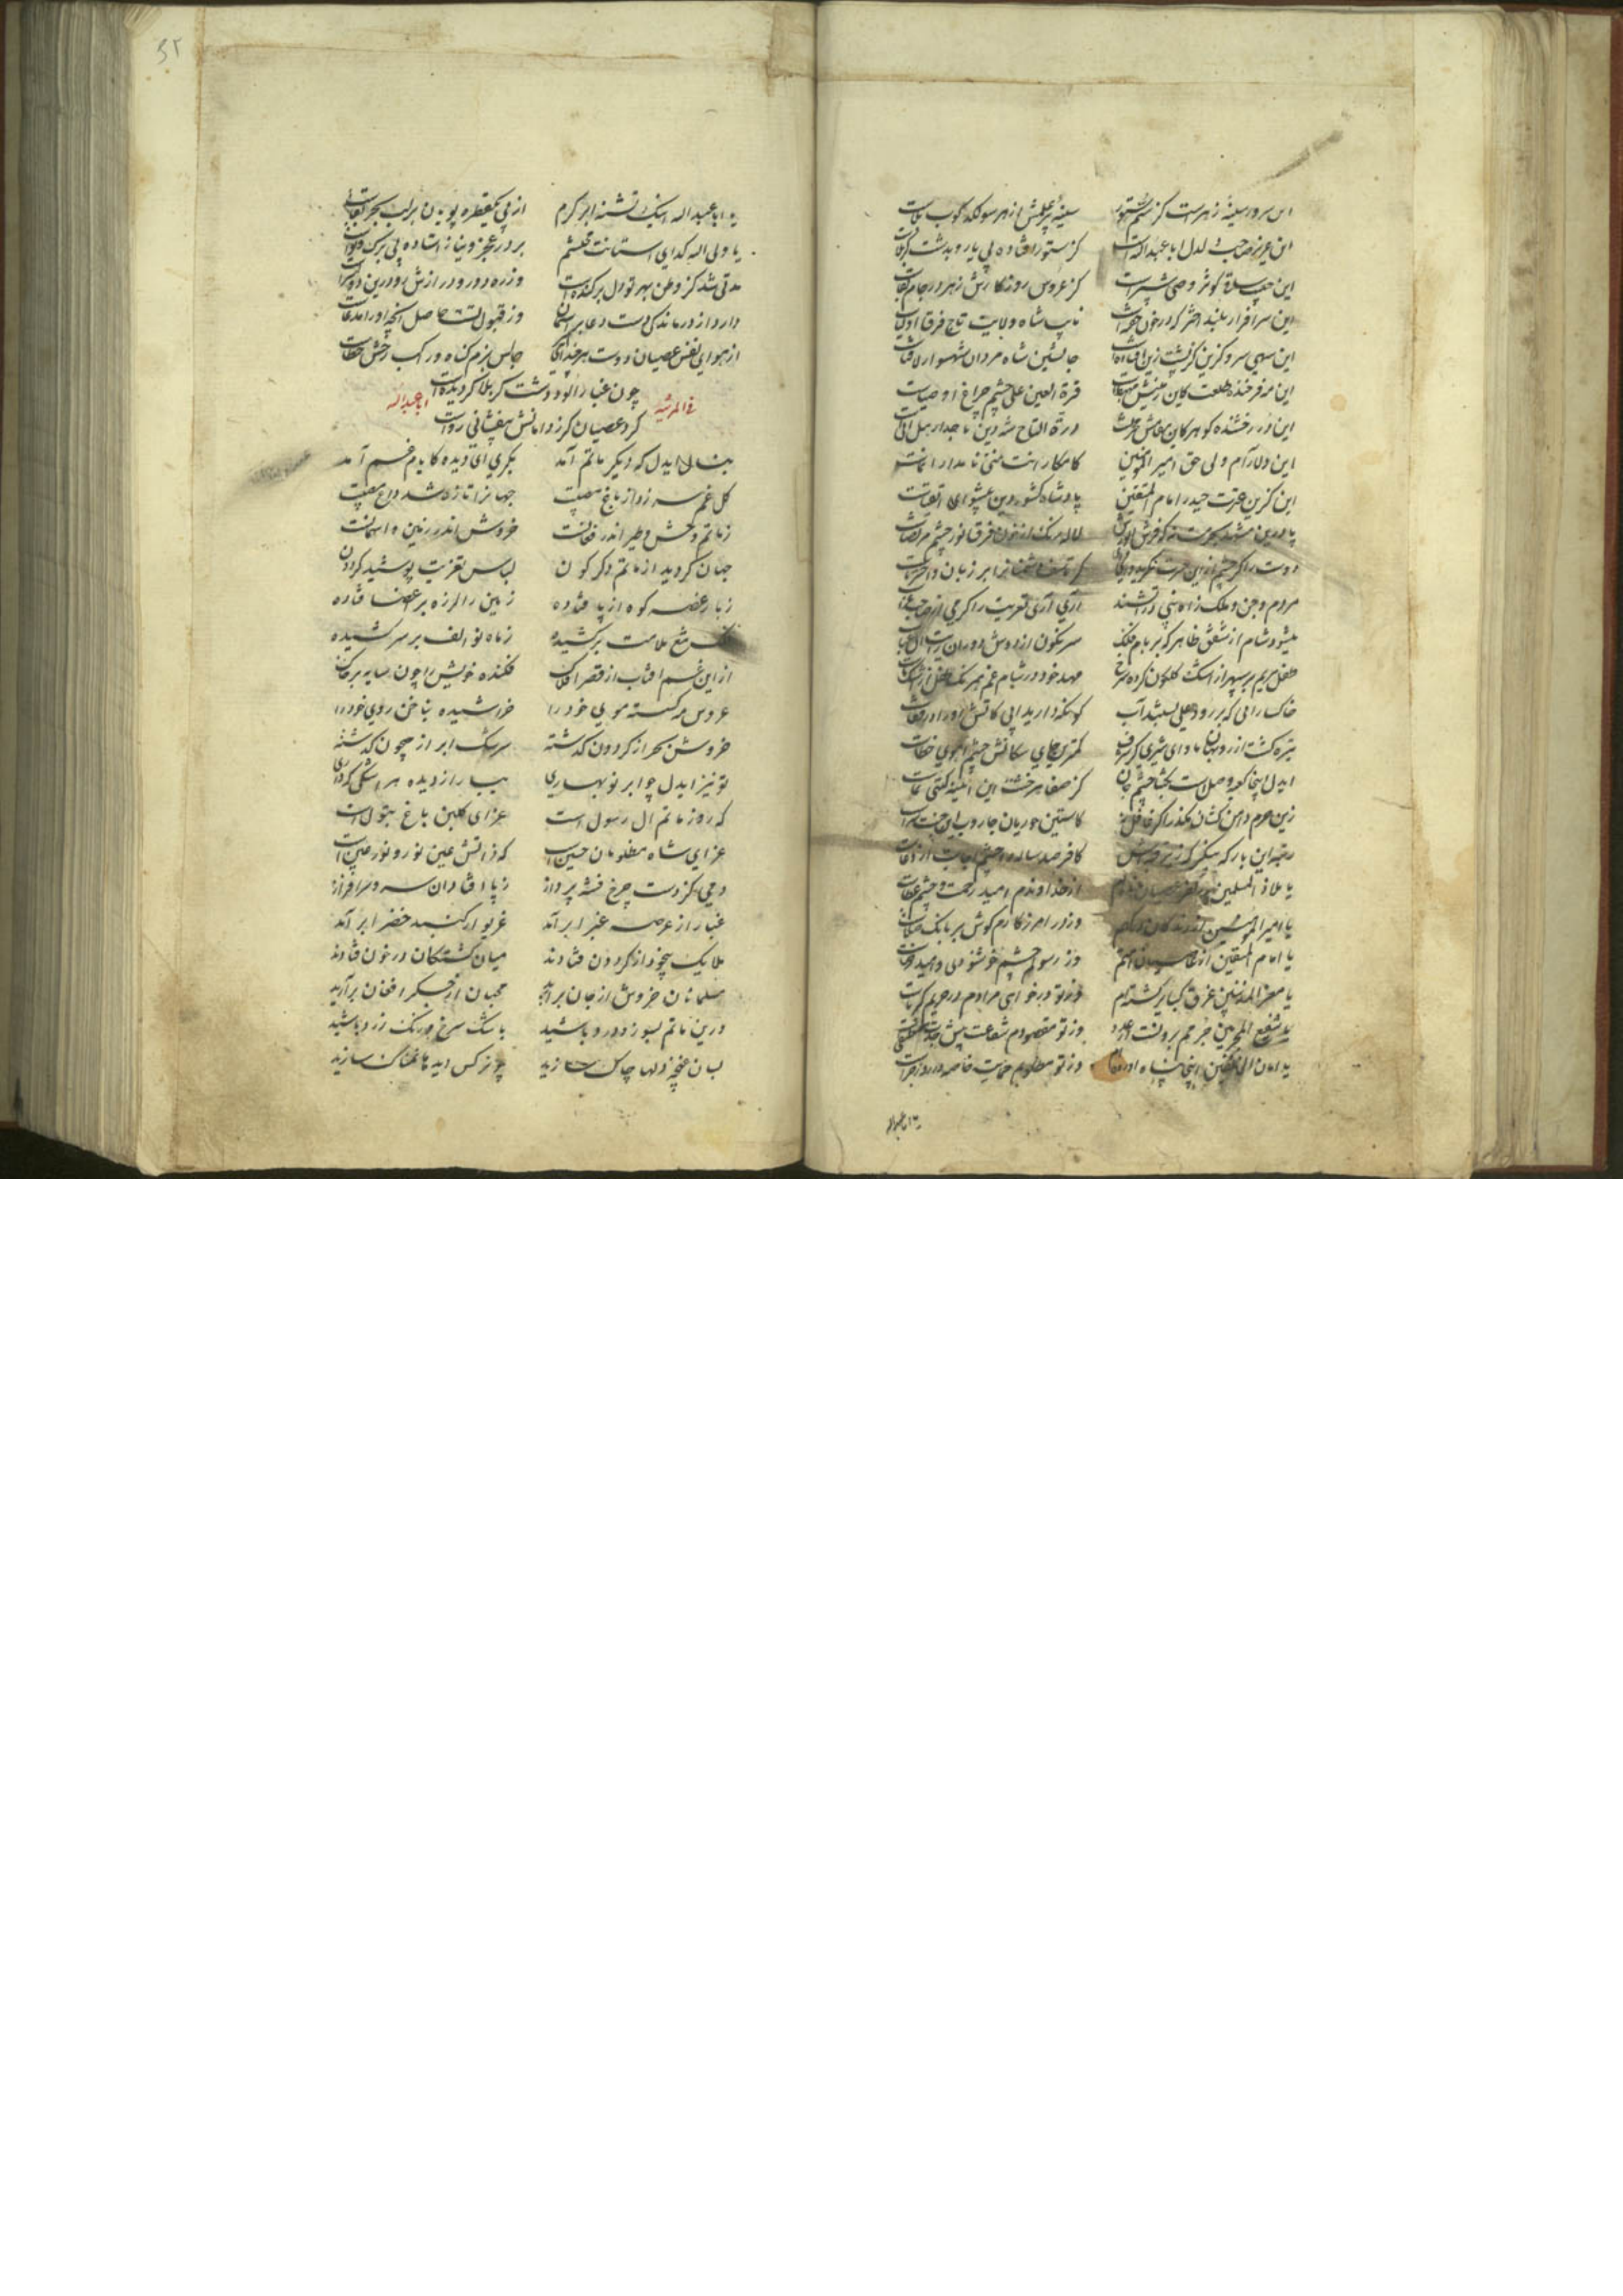 این سرور سینهٔ زهراست کز سم ستور سینهٔ پر علمش از هر سو لگدکوب بلاست
این عزیز صاحب دلدل ابا عبد الله است کز ستور افتاده بی یاور بدشت کربلاست
این حبیب ساقی کوثر وصی شبر است کز عروس روزگارش زهر در جام
این سرافراز بلند اختر که در خون خفته است نایب شاه ولایت تاج فرق اولیاست
این سهی سرو گزین کز پشت زین افتاده است جانشین شاه مردان شهسوار لافتاست
این مه فرخنده طلعت کاین زمینش قرة العین علی چشم و چراغ اوصیاست
این در رخشنده گوهر کان درة التاج شه دین تاجدار هل اتی است
این دلارام ولی حق امیر المؤمنین کامکار
این گزین عترت حیدر امام المتقین پادشاه کشور دین پیشوای اتقیاست
لاله رنگ از خون فرق نور چشم مرتضاست
دوست را گر چشم ازین حسرت نگرید وای
مردم و جن و ملک ز آه نبی در آتشند آری آری تعزیت را گرمی از صاحب عزاست
میشود شام از شفق ظاهر که بر بام فلک سرنگون از دوش دوران رایت آل عباست
طفل مریم بر سپهر از اشک گلگون کرده سرخ مهد خود در شام غم همرنگ طفل اشک ماست
خاکساری که بر رود علی بستند آب
تیره گشت از روبهان ماوای شیری کز شرف کمترین جای سگانش چشم آهوی خطاست
ایدل اینجا کعبه وصل است بگشا چشم جان کز صفا هر خشت این آیینه گیتی نماست
زین حرم دامن کشان مگذر اگر غافل نه کاستین حوریان جاروب این جنت سراست
رتبه این بارگه بنگر که زیر قبه اش کافر صدساله را چشم اجابت از دعاست
یا ملاذ المسلمین از خداوندم امید رحمت و چشم عطاست
یا امیر المؤمنین وز در آمرزگارم گوش بر بانگ صلاست
یا امام المتقین وز رسولم چشم خوشنودی و امید رضاست
یا معز المذنبین غرق کبایر گشته ام وز تو در خواهی مرادم در حریم کبریاست
یا شفیع المجرمین جرمم برونست از عدد وز تو مقصودم شفاعت پیش جدت مصطفی است
یا امان الخائفین اینجا پناه آورده ام وز تو مطلوبم حمایت خاصه در روز جزاست
یا ابا عبدالله
یا ابا عبد الله اینک تشنه ابر کرم از پی یکقطره پویان بر لب بحر سخاست
یا ولی الله گدای آستانت محتشم بر در عجز و نیاز استاده بی برگ و نواست
مدتی شد کز وطن بهر تو دل بر کنده است وز ره دور و درازش رو درین دولتسراست
دارد از درماندگی دست دعا بر آسمان وز قبول تست حاصل آنچه او را مدعاست
از هوای نفس عصیان دوست هر چند ای جالس بزم گناه و راکب رخش خطاست
چون غبار آلود دشت کربلا گردیده است
فی المرثیه ابا عبد الله
گرد عصیان گر ز دامانش بیفشانی رواست
بنال ایدل که دیگر ماتم آمد بگری ای دیده کایام غم آمد
گل غم سر زد از باغ مصیبت جهانرا تازه شد داغ مصیبت
ز ماتم وحش و طیر اندر فغانست خروش اندر زمین و آسمانست
جهان گردید از ماتم دگرگون لباس تعزیت پوشید گردون
ز بار غصه کوه از پا فتاده زمین را لرزه بر اعضا فتاده
فلک تیغ ملامت برکشیده ز ماه نو الف بر سر کشیده
ازین غم آفتاب از قصر افلاک فکنده خویش را چون سایه بر خاک
عروس مه گسسته موی خود را خراشیده بناخن روی خود را
خروش بحر از گردون گذشته سرشک ابر از جیحون گذشته
تو نیز ایدل چو ابر نوبهاری ببار از دیده هر اشکی که داری
که روز ماتم آل رسول است عزای گلبن باغ بتول است
عزای شاه مظلومان حسین است که ذاتش عین نور و نور عین است
دمی کز دست چرخ فتنه پرداز ز پا افتاد آن سرو سرافراز
غبار از عرصه غبرا برآمد غریو از گنبد خضرا برآمد
ملایک بیخود از گردون فتادند میان کشتگان در خون فتادند
مسلمانان خروش از جان برآرید محبان از جگر افغان برآرید
درین ماتم بسوز و درد باشید باشک سرخ و رنگ زرد باشید
بسان غنچه دلها چاک سازید چو نرگس دیدها نمناک سازید
۳۲